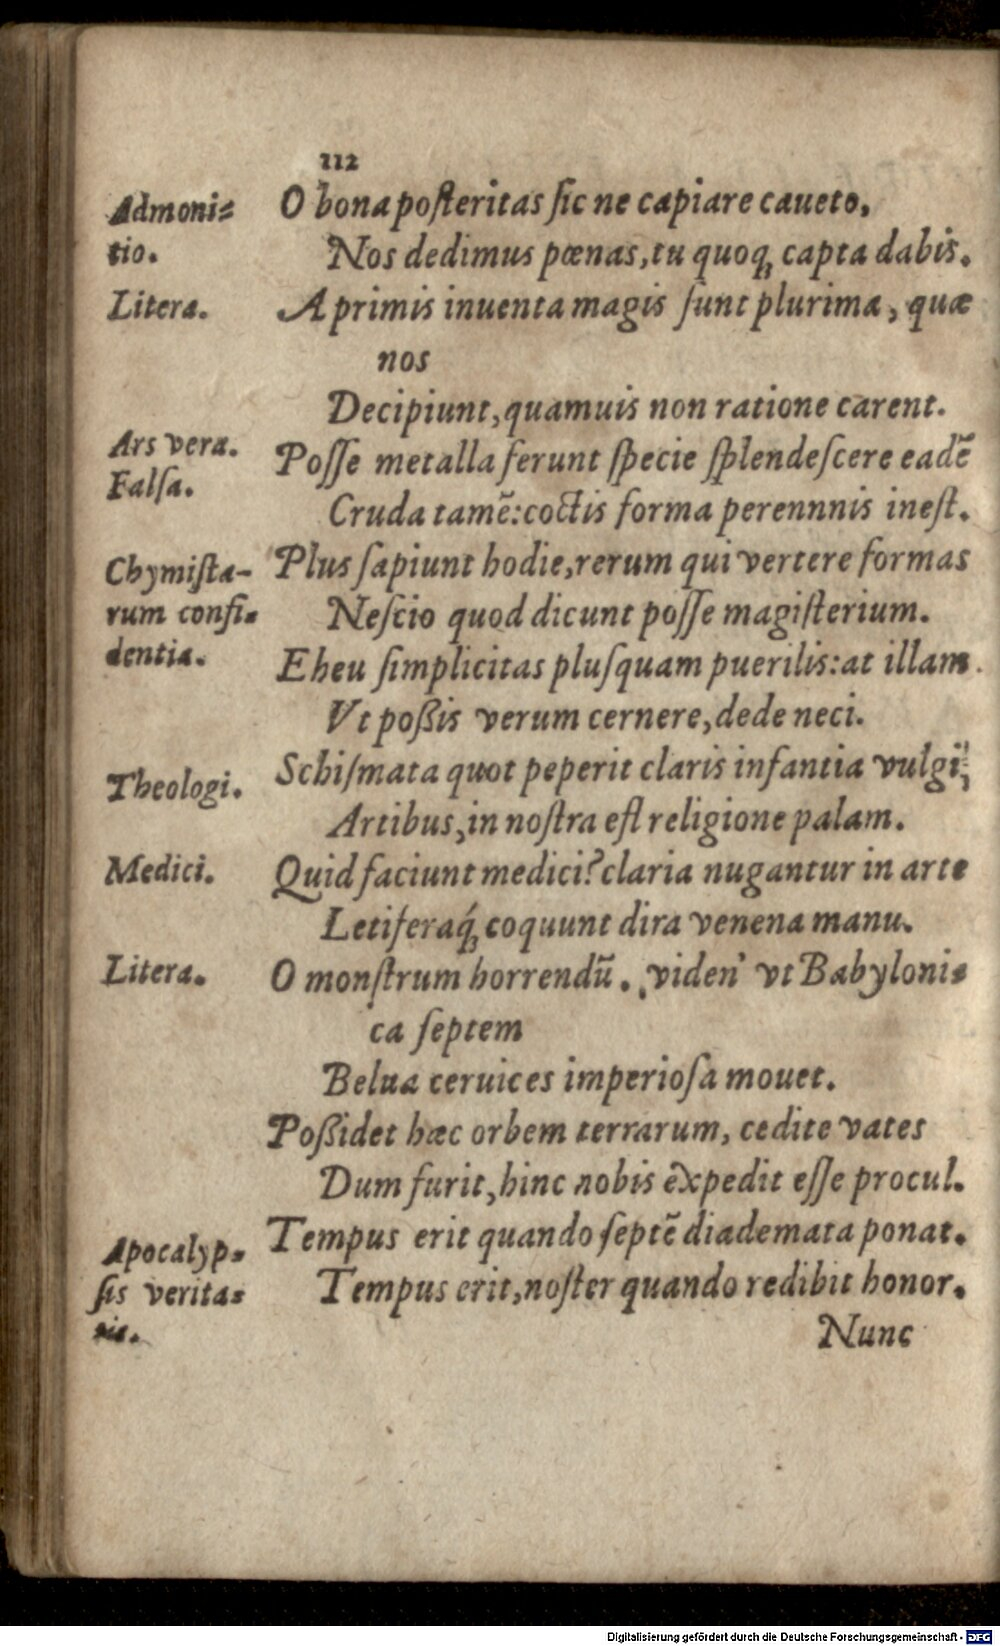 112
Admoni⸗
tio.
O bona posteritas ſic ne capiare caueto,
Nos dedimus pœnas, tu quoq; capta dabis.
Litera.
A primis inuenta magis ſunt plurima, quæ
nos
Decipiunt, quamuis non ratione carent.
Ars vera.
Falſa.
Poſſe metalla ferunt ſpecie ſplendeſcere eadē
Cruda tamē: coctis forma perennnis ineſt.
Chymiſta-
rum confi⸗
dentia.
Plus ſapiunt hodie, rerum qui vertere formas
Neſcio quod dicunt poſſe magiſterium.
Eheu ſimplicitas pluſquam puerilis: at illam
Vt poßis verum cernere, dede neci.
Theologi.
Schiſmata quot peperit claris infantia vulgi,
Artibus, in noſtra eſt religione palam.
Medici.
Quid faciunt medici? claria nugantur in arte
Letiferaq́; coquunt dira venena manu.
Litera.
O monſtrum horrendū. viden' vt Babyloni⸗
ca ſeptem
Belua ceruices imperioſa mouet.
Poßidet hæc orbem terrarum, cedite vates
Dum furit, hinc nobis expedit eſſe procul.
Apocalyp⸗
ſis verita⸗
Tempus erit quando ſeptē diademata ponat.
Tempus erit, noſter quando redibit honor.
Nunc
Digitalisierung gefördert durch die Deutsche Forschungsgemeinschaft - DFG